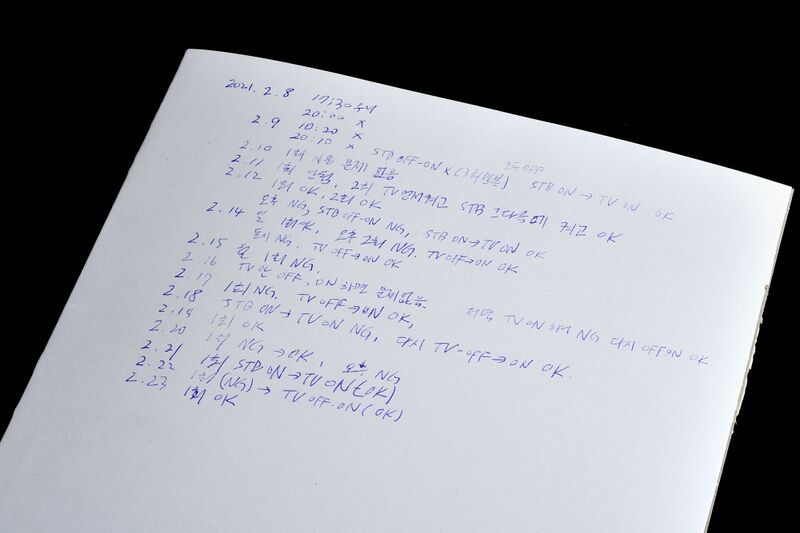 2021. 2. 8 17:30
20:00 x
2.9 10:20 x
20:10 x STB OFF-ON x (3회반복) 모두 OFF STB ON → TV ON OK
2.10 1회 사용 문제 없음
2.11 1회 안됨, 2회 TV먼저켜고 STB 그다음에 켜고 OK
2.12 1회 OK, 2회 OK
오후 NG, STB OFF-ON NG, STB ON → TV ON OK
2.14 일 1회OK, 오후 2회 NG. TV OFF → ON OK
동시 NG, TV OFF → ON OK
2.15 월 1회 NG.
2.16 TV만 OFF, ON 하면 문제없음.
2.17 1회 NG. TV OFF → ON OK, 저녁 TV ON 하면 NG 다시 OFF ON OK
2.18 STB ON → TV ON NG, 다시 TV-OFF → ON OK.
2.19 1회 OK
2.20 1회 NG → OK, 오후 NG
2.21 1회 STB ON → TV ON (OK)
2.22 1회 (NG) → TV OFF-ON (OK)
2.23 1회 OK